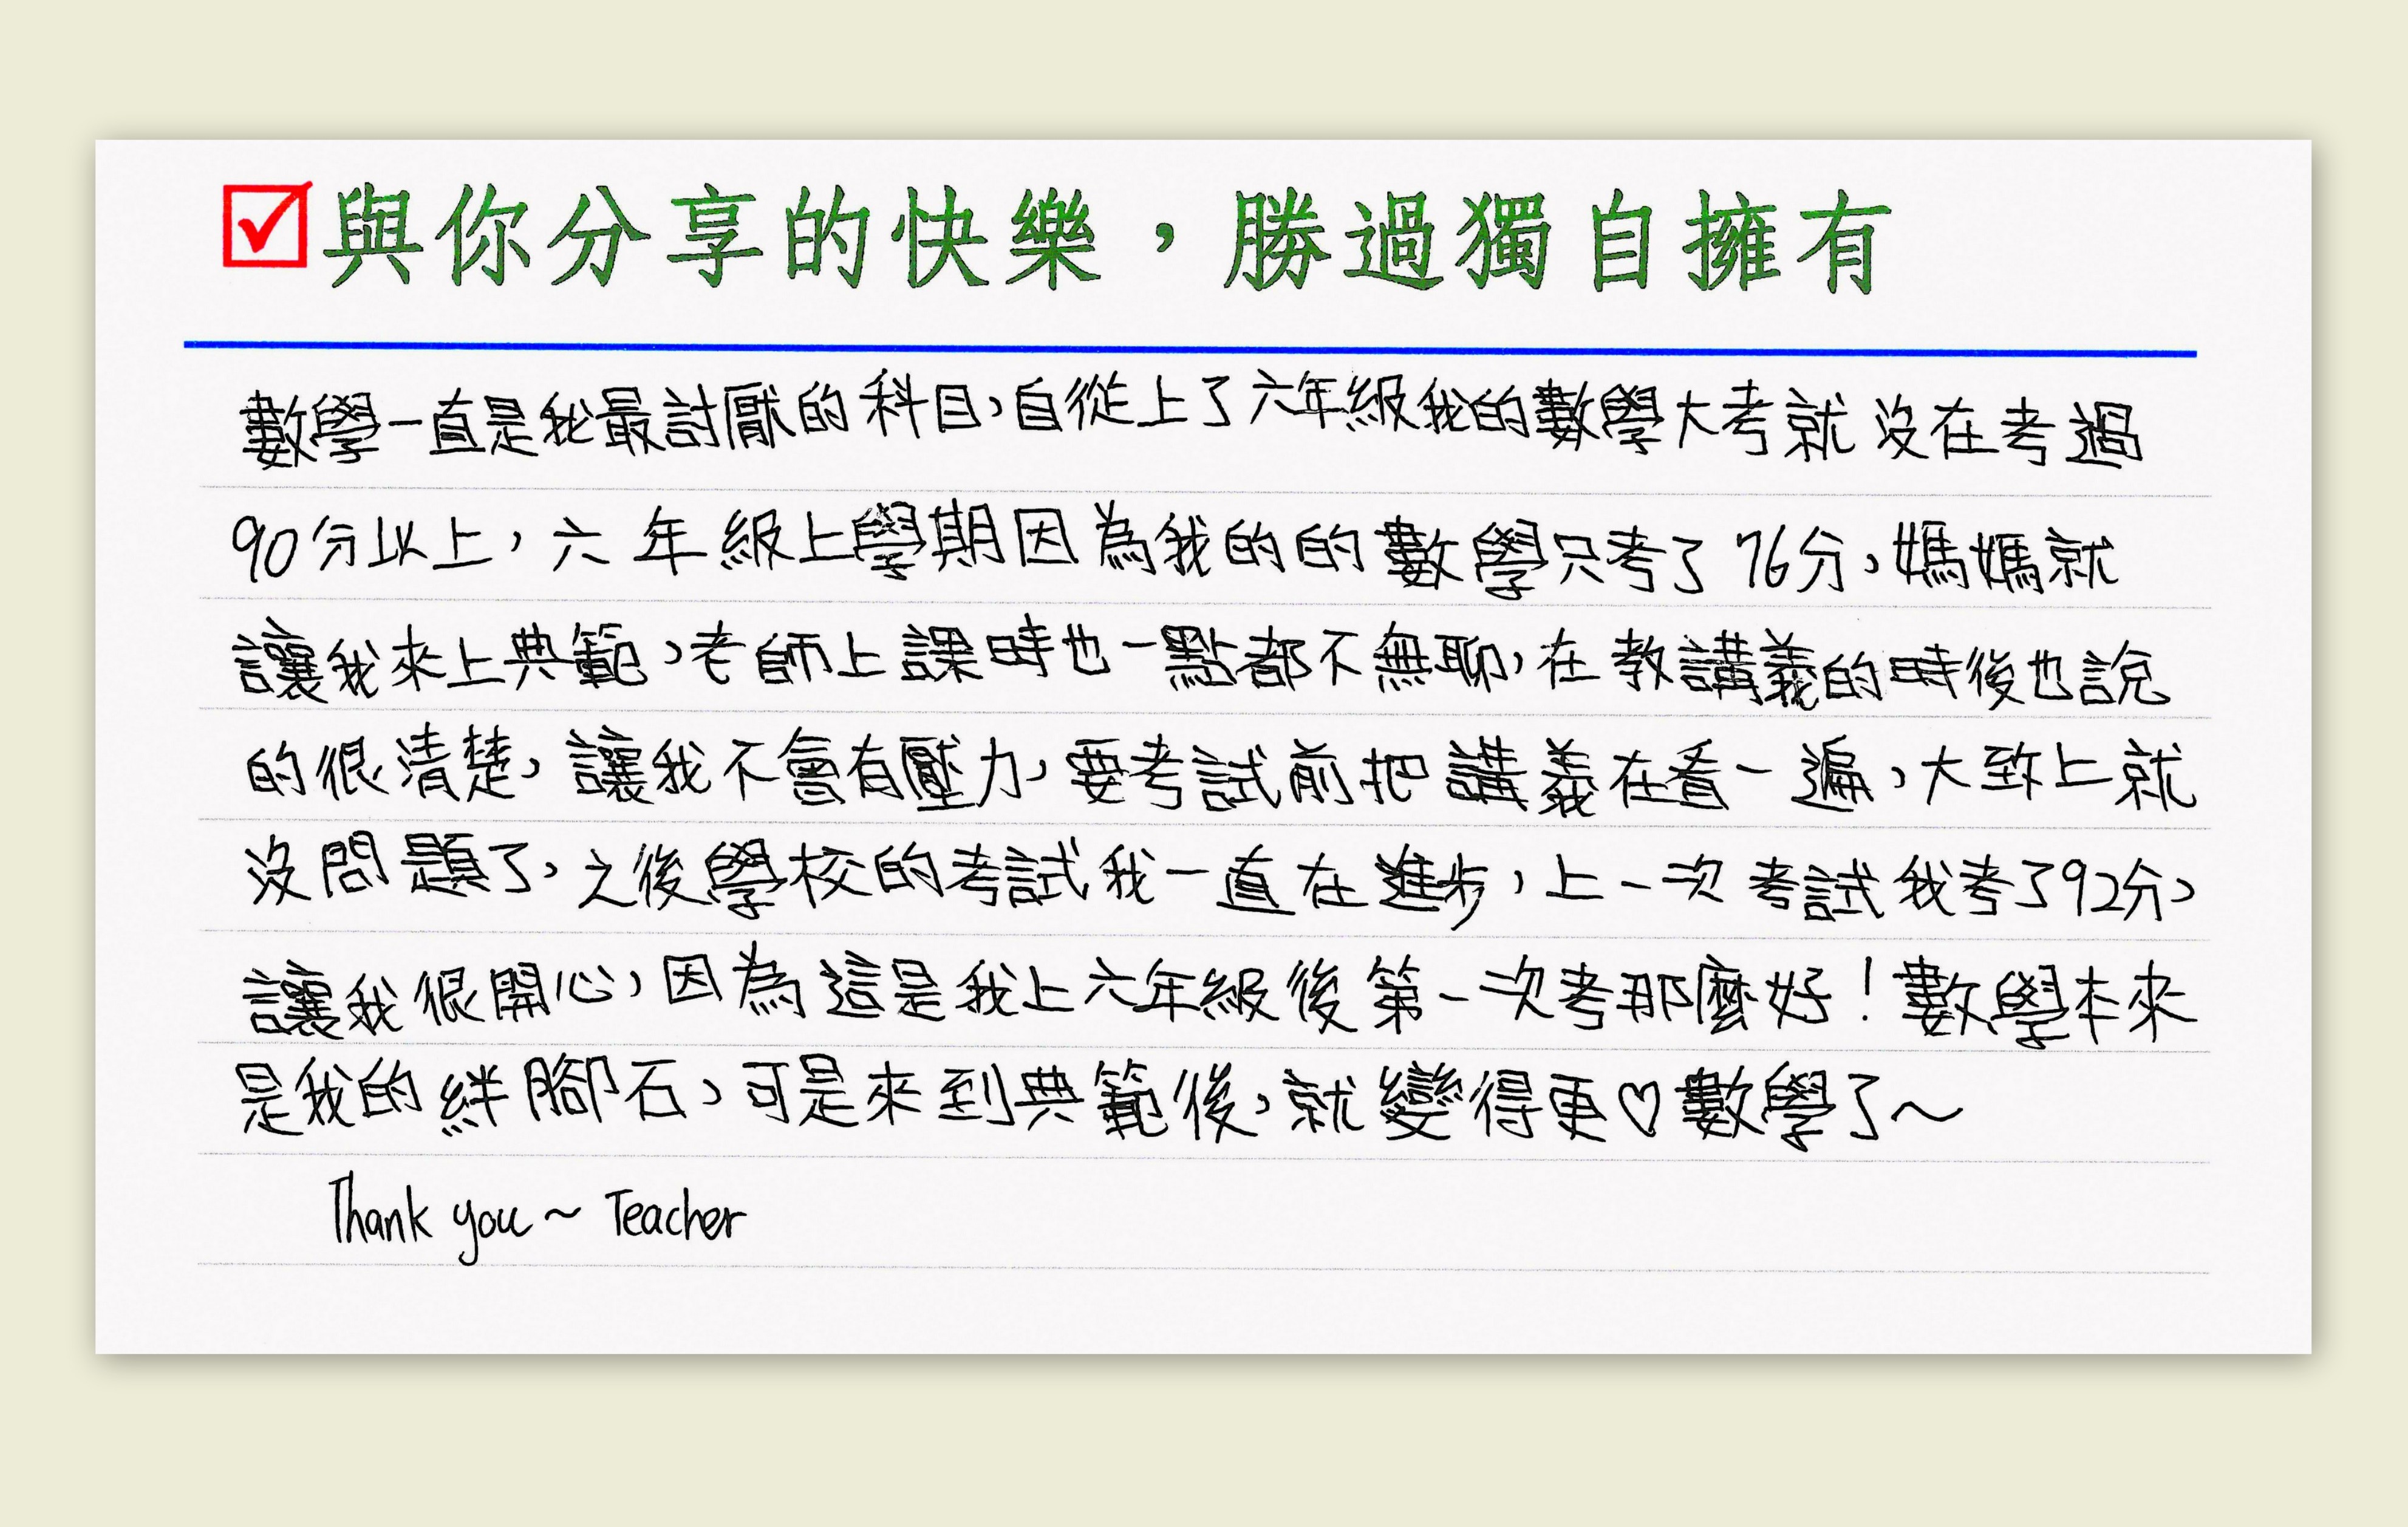 ☑與你分享的快樂，勝過獨自擁有
數學一直是我最討厭的科目，自從上了六年級我的數學大考就沒在考過
90分以上，六年級上學期因為我的的數學只考了76分，媽媽就
讓我來上典範，老師上課時也一點都不無聊，在教講義的時後也說
的很清楚，讓我不會有壓力，要考試前把講義在看一遍，大致上就
沒問題了，之後學校的考試我一直在進步，上一次考試我考了92分，
讓我很開心，因為這是我上六年級後第一次考那麼好！數學本來
是我的絆腳石，可是來到典範後，就變得更♡數學了～
Thank you ~ Teacher